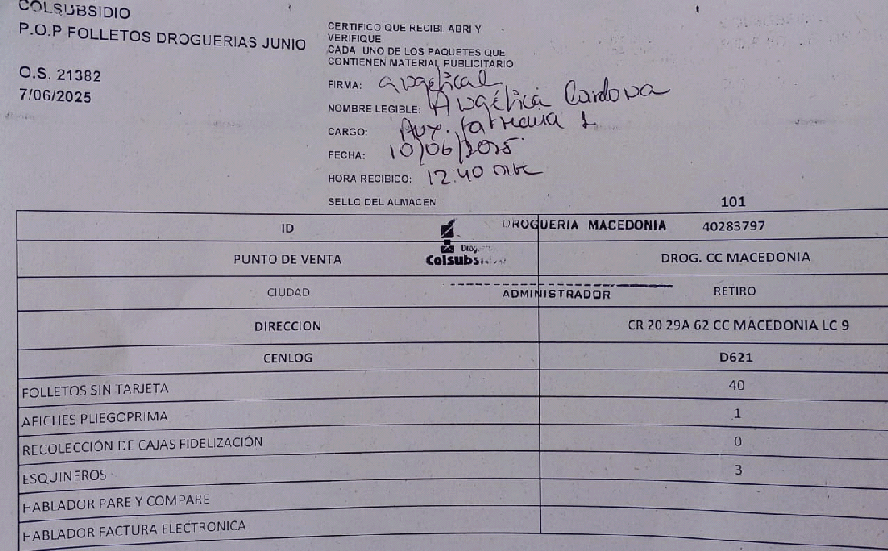 COLSUBSIDIO
P.O.P FOLLETOS DROGUERIAS JUNIO
O.S. 21382
7/06/2025
CERTIFICO QUE RECIBI ABRI Y
VERIFIQUE
CADA UNO DE LOS PAQUETES QUE
CONTIENEN MATERIAL PUBLICITARIO
FIRMA: Angelica C
NOMBRE LEGIBLE: Angélica Cardona
CARGO: Aux. farmacia 1
FECHA: 10/06/2025
HORA RECIBIDO: 12:40
SELLO DEL ALMACEN
101
ID DROGUERIA MACEDONIA 40283797
Colsubsidio
PUNTO DE VENTA DROG. CC MACEDONIA
CIUDAD ADMINISTRADOR RETIRO
DIRECCION CR 20 29A 62 CC MACEDONIA LC 9
CENLOG D621
FOLLETOS SIN TARJETA 40
AFICHES PLIEGOPRIMA 1
RECOLECCIÓN DE CAJAS FIDELIZACIÓN 0
ESQUINEROS 3
HABLADOR PARE Y COMPARE
HABLADOR FACTURA ELECTRONICA